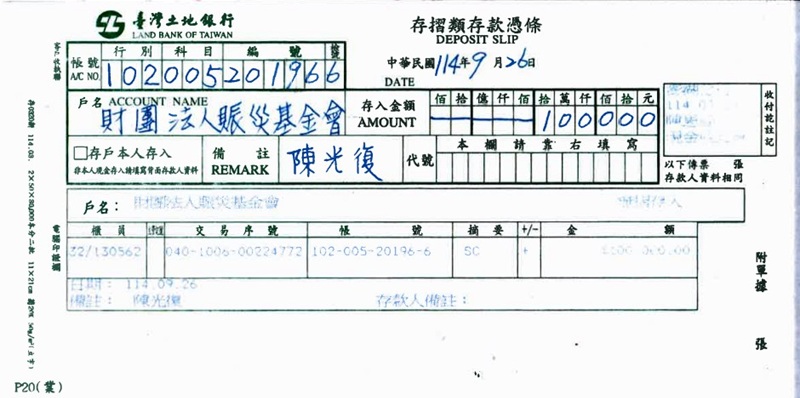 臺灣土地銀行
LAND BANK OF TAIWAN
存摺類存款憑條
DEPOSIT SLIP
中華民國114年9月26日
DATE
行別 科目 編號
帳號
A/C NO. 102005201966
戶名 ACCOUNT NAME
財團法人賑災基金會
存入金額
AMOUNT
佰拾億仟佰拾萬仟佰拾元
100000
收付訖註記
□存戶本人存入
非本人現金存入請填寫背面存款人資料
備註
REMARK
陳光復
代號
本欄請靠右填寫
以下傳票 張
存款人資料相同
戶名：財團法人賑災基金會
櫃員 交易序號 帳號 摘要 +/- 金額
32/130562 040-1006-00224772 102-005-20196-6 SC +
日期： 114.09.26
備註： 陳光復 存款人備註：
附單據 張
P20(業)